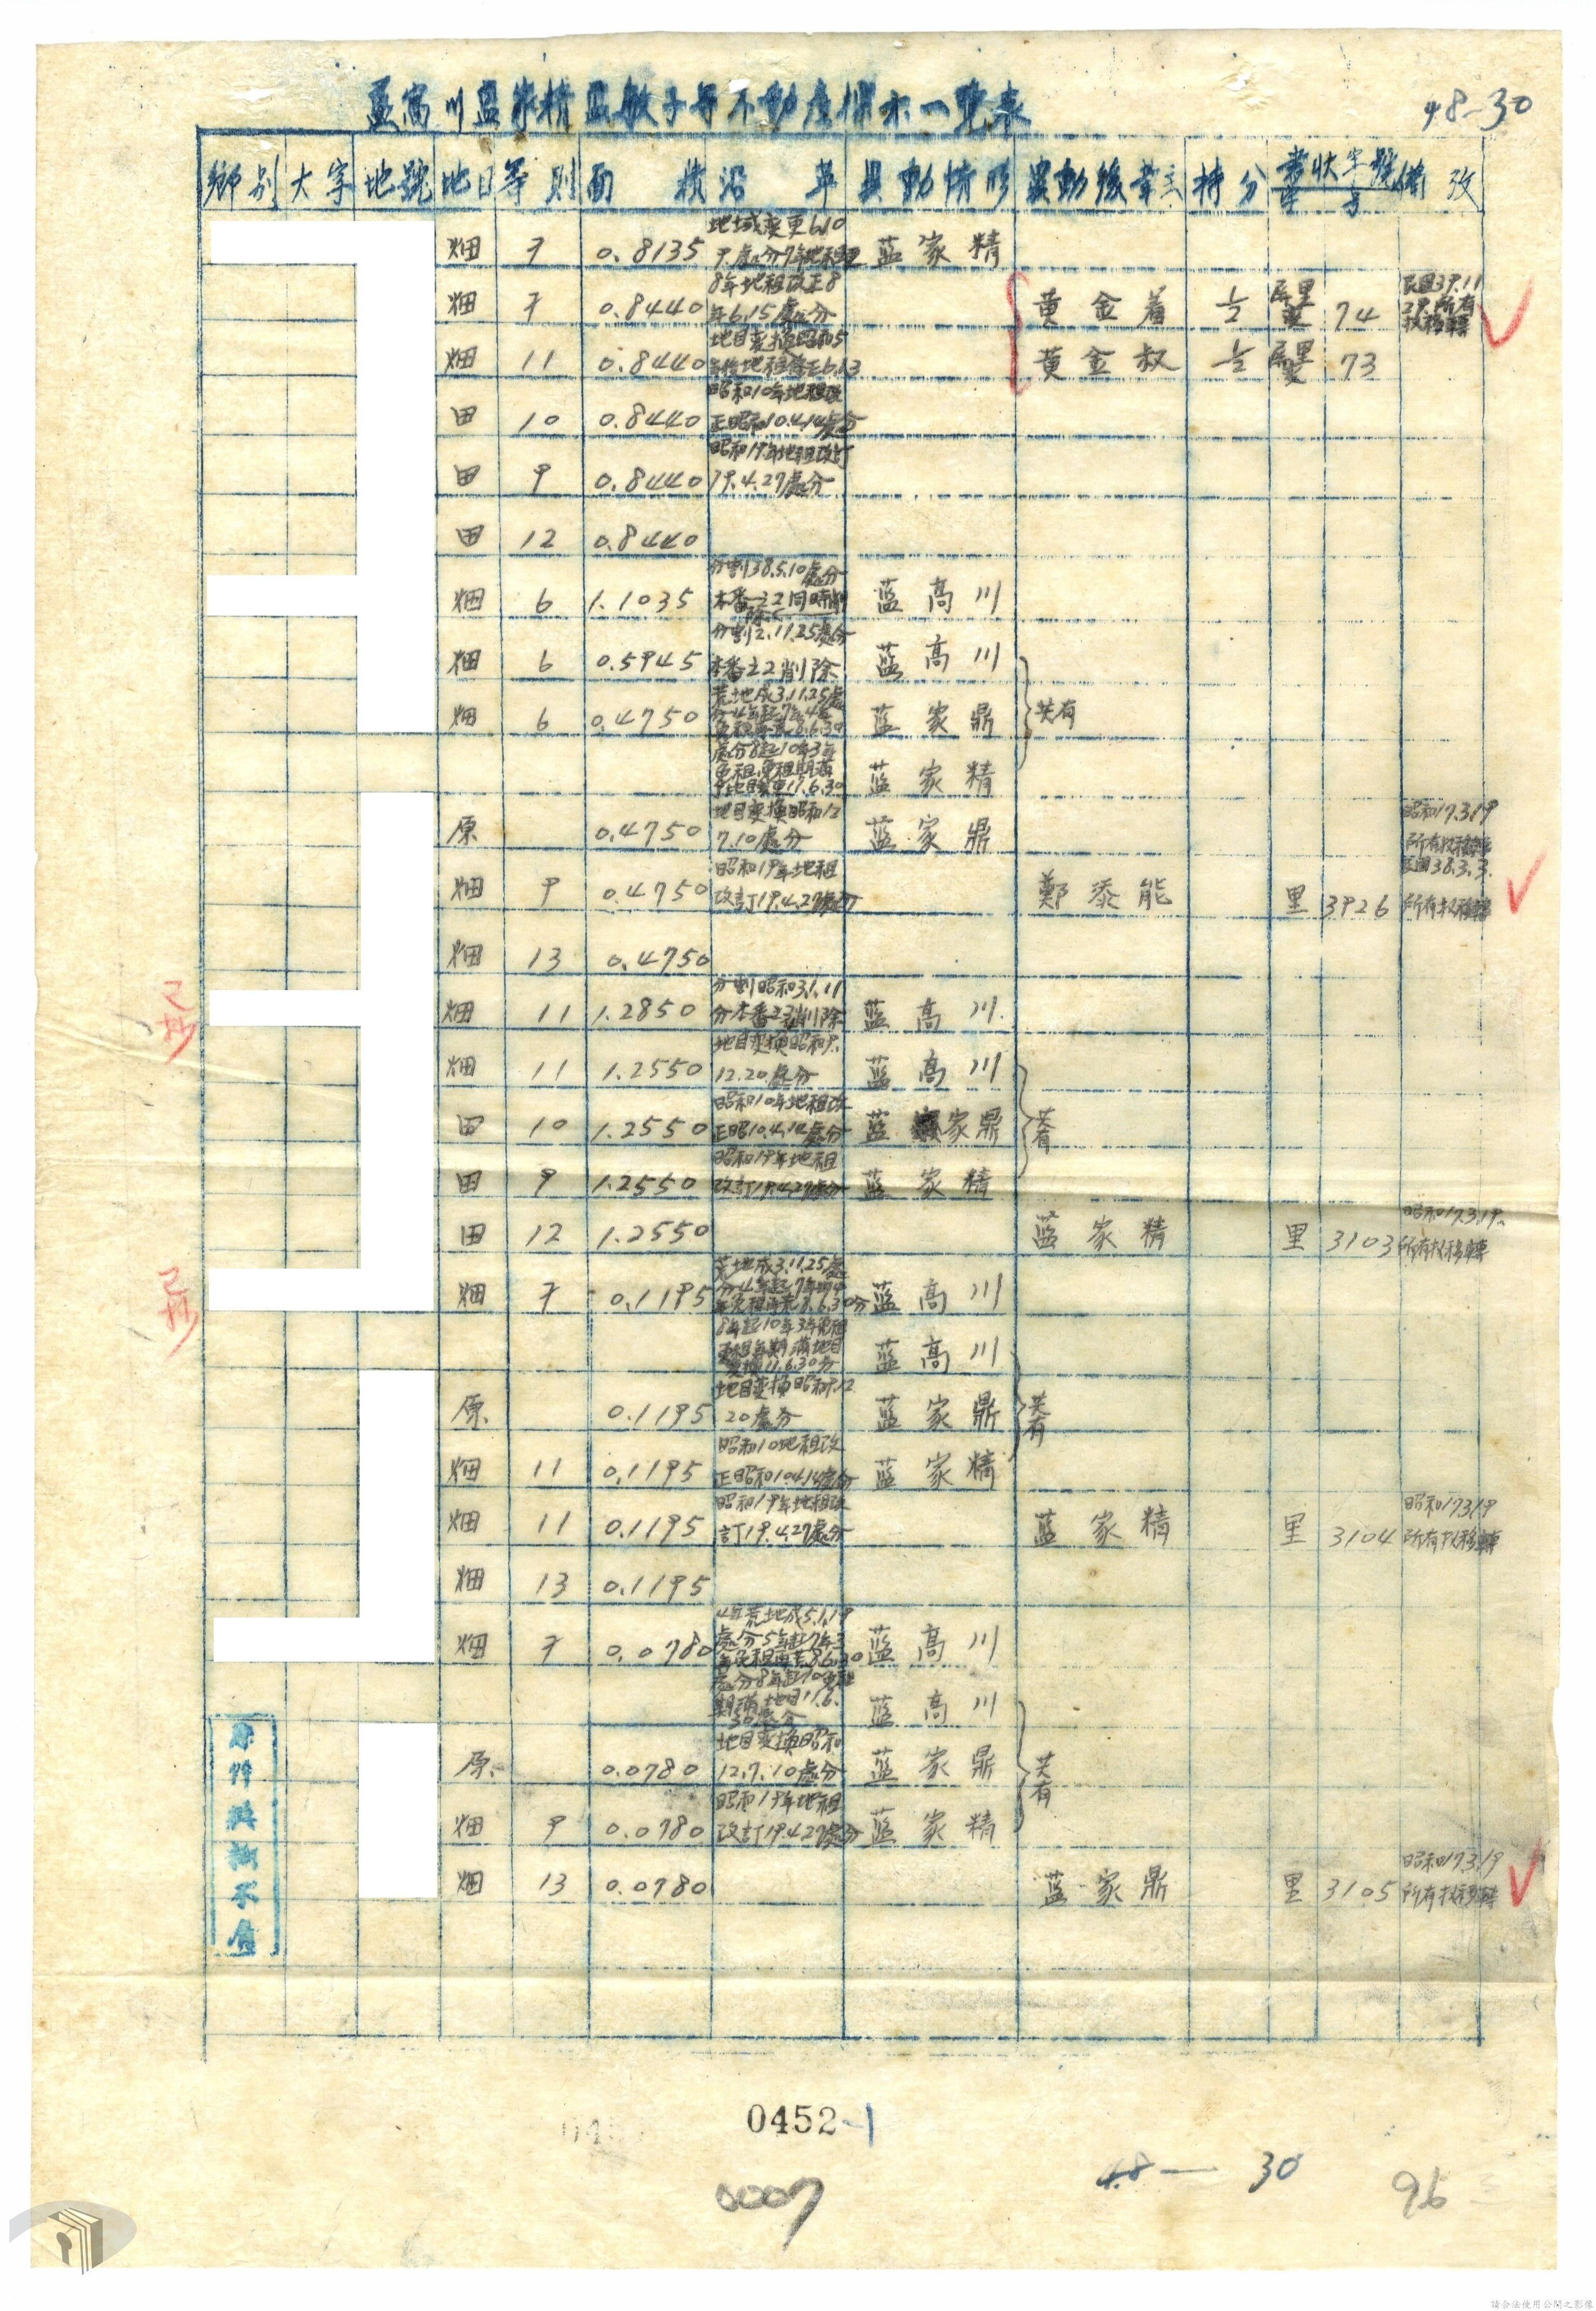 藍高川藍家精藍敏子等不動產標示一覽表
48-30
鄉别 大字 地號 地目 等則 面積 沿革 異動情形 異動後業主 持分 書狀字號 備攷
地域変更6.10
畑 7 0.8135 藍家精
8年地租改正8
畑 7 0.8440 年6.15處分 黄金着 ½ 屏里 74 民国39.11 所有权移轉
地目変換昭和5
畑 11 0.8440 黄金叔 ½ 屏里 73
昭和10年地租改
田 10 0.8440 正昭和10.4.14處分
昭和19年地租改訂
田 9 0.8440 19.4.27處分
田 12 0.8440
分割38.5.10處分
畑 6 1.1035 本番之2同時削除 藍高川
分割2.11.25處分
畑 6 0.5945 本番之2削除 藍高川
荒地成3.11.25處
畑 6 0.4750 藍家鼎 共有
處分8起10年3年
免租免租期満
地目変更11.6.30 藍家精
地目変換昭和12
原 0.4750 7.10處分 藍家鼎 昭和17.3.19
所有权移轉
昭和19年地租 民国38.3.3.
畑 9 0.4750 改訂19.4.27處分 鄭添能 里 3926 所有权移轉
畑 13 0.4750
分割昭和3.1.11
畑 11 1.2850 分本番之3削除 藍高川
地目変換昭和9.
畑 11 1.2550 12.20處分 藍高川
昭和10年地租改
田 10 1.2550 正昭10.4.14處分 藍家鼎 共有
昭和19年地租
田 9 1.2550 改訂19.4.27處分 藍家精
田 12 1.2550 藍家精 里 3103 昭和17.3.19.
所有权移轉
荒地成3.11.25處
畑 7 0.1195 藍高川
8年起10年3年免租
免租年期満地目
変換11.6.30分 藍高川
地目変換昭和9.12
原 0.1195 20處分 藍家鼎 共有
昭和10地租改
畑 11 0.1195 正昭和10.4.14處分 藍家精
昭和19年地租改 昭和17.3.19
畑 11 0.1195 訂19.4.27處分 藍家精 里 3104 所有权移轉
畑 13 0.1195
4年荒地成5.1.19
處分5年起7年3
畑 7 0.0780 藍高川
處分8年起10免租
期満地目11.6.
30處分 藍高川
地目変換昭和
原 0.0780 12.7.10處分 藍家鼎 共有
昭和19年地租
畑 9 0.0780 改訂19.4.27處分 藍家精
昭和17.3.19
畑 13 0.0780 藍家鼎 里 3105 所有权移轉
已抄
已抄
原件模糊不清
0452-1
0007
48— 30
96
請合法使用公開之影像